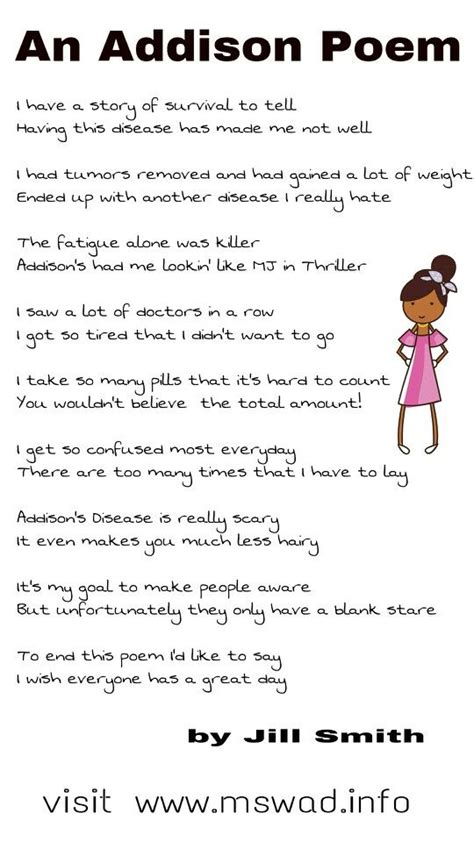 An Addison Poem
I have a story of survival to tell
Having this disease has made me not well
I had tumors removed and had gained a lot of weight
Ended up with another disease I really hate
The fatigue alone was killer
Addison's had me lookin' like MJ in Thriller
I saw a lot of doctors in a row
I got so tired that I didn't want to go
I take so many pills that it's hard to count
You wouldn't believe the total amount!
I get so confused most everyday
There are too many times that I have to lay
Addison's Disease is really scary
It even makes you much less hairy
It's my goal to make people aware
But unfortunately they only have a blank stare
To end this poem I'd like to say
I wish everyone has a great day
by Jill Smith
visit www.mswad.info